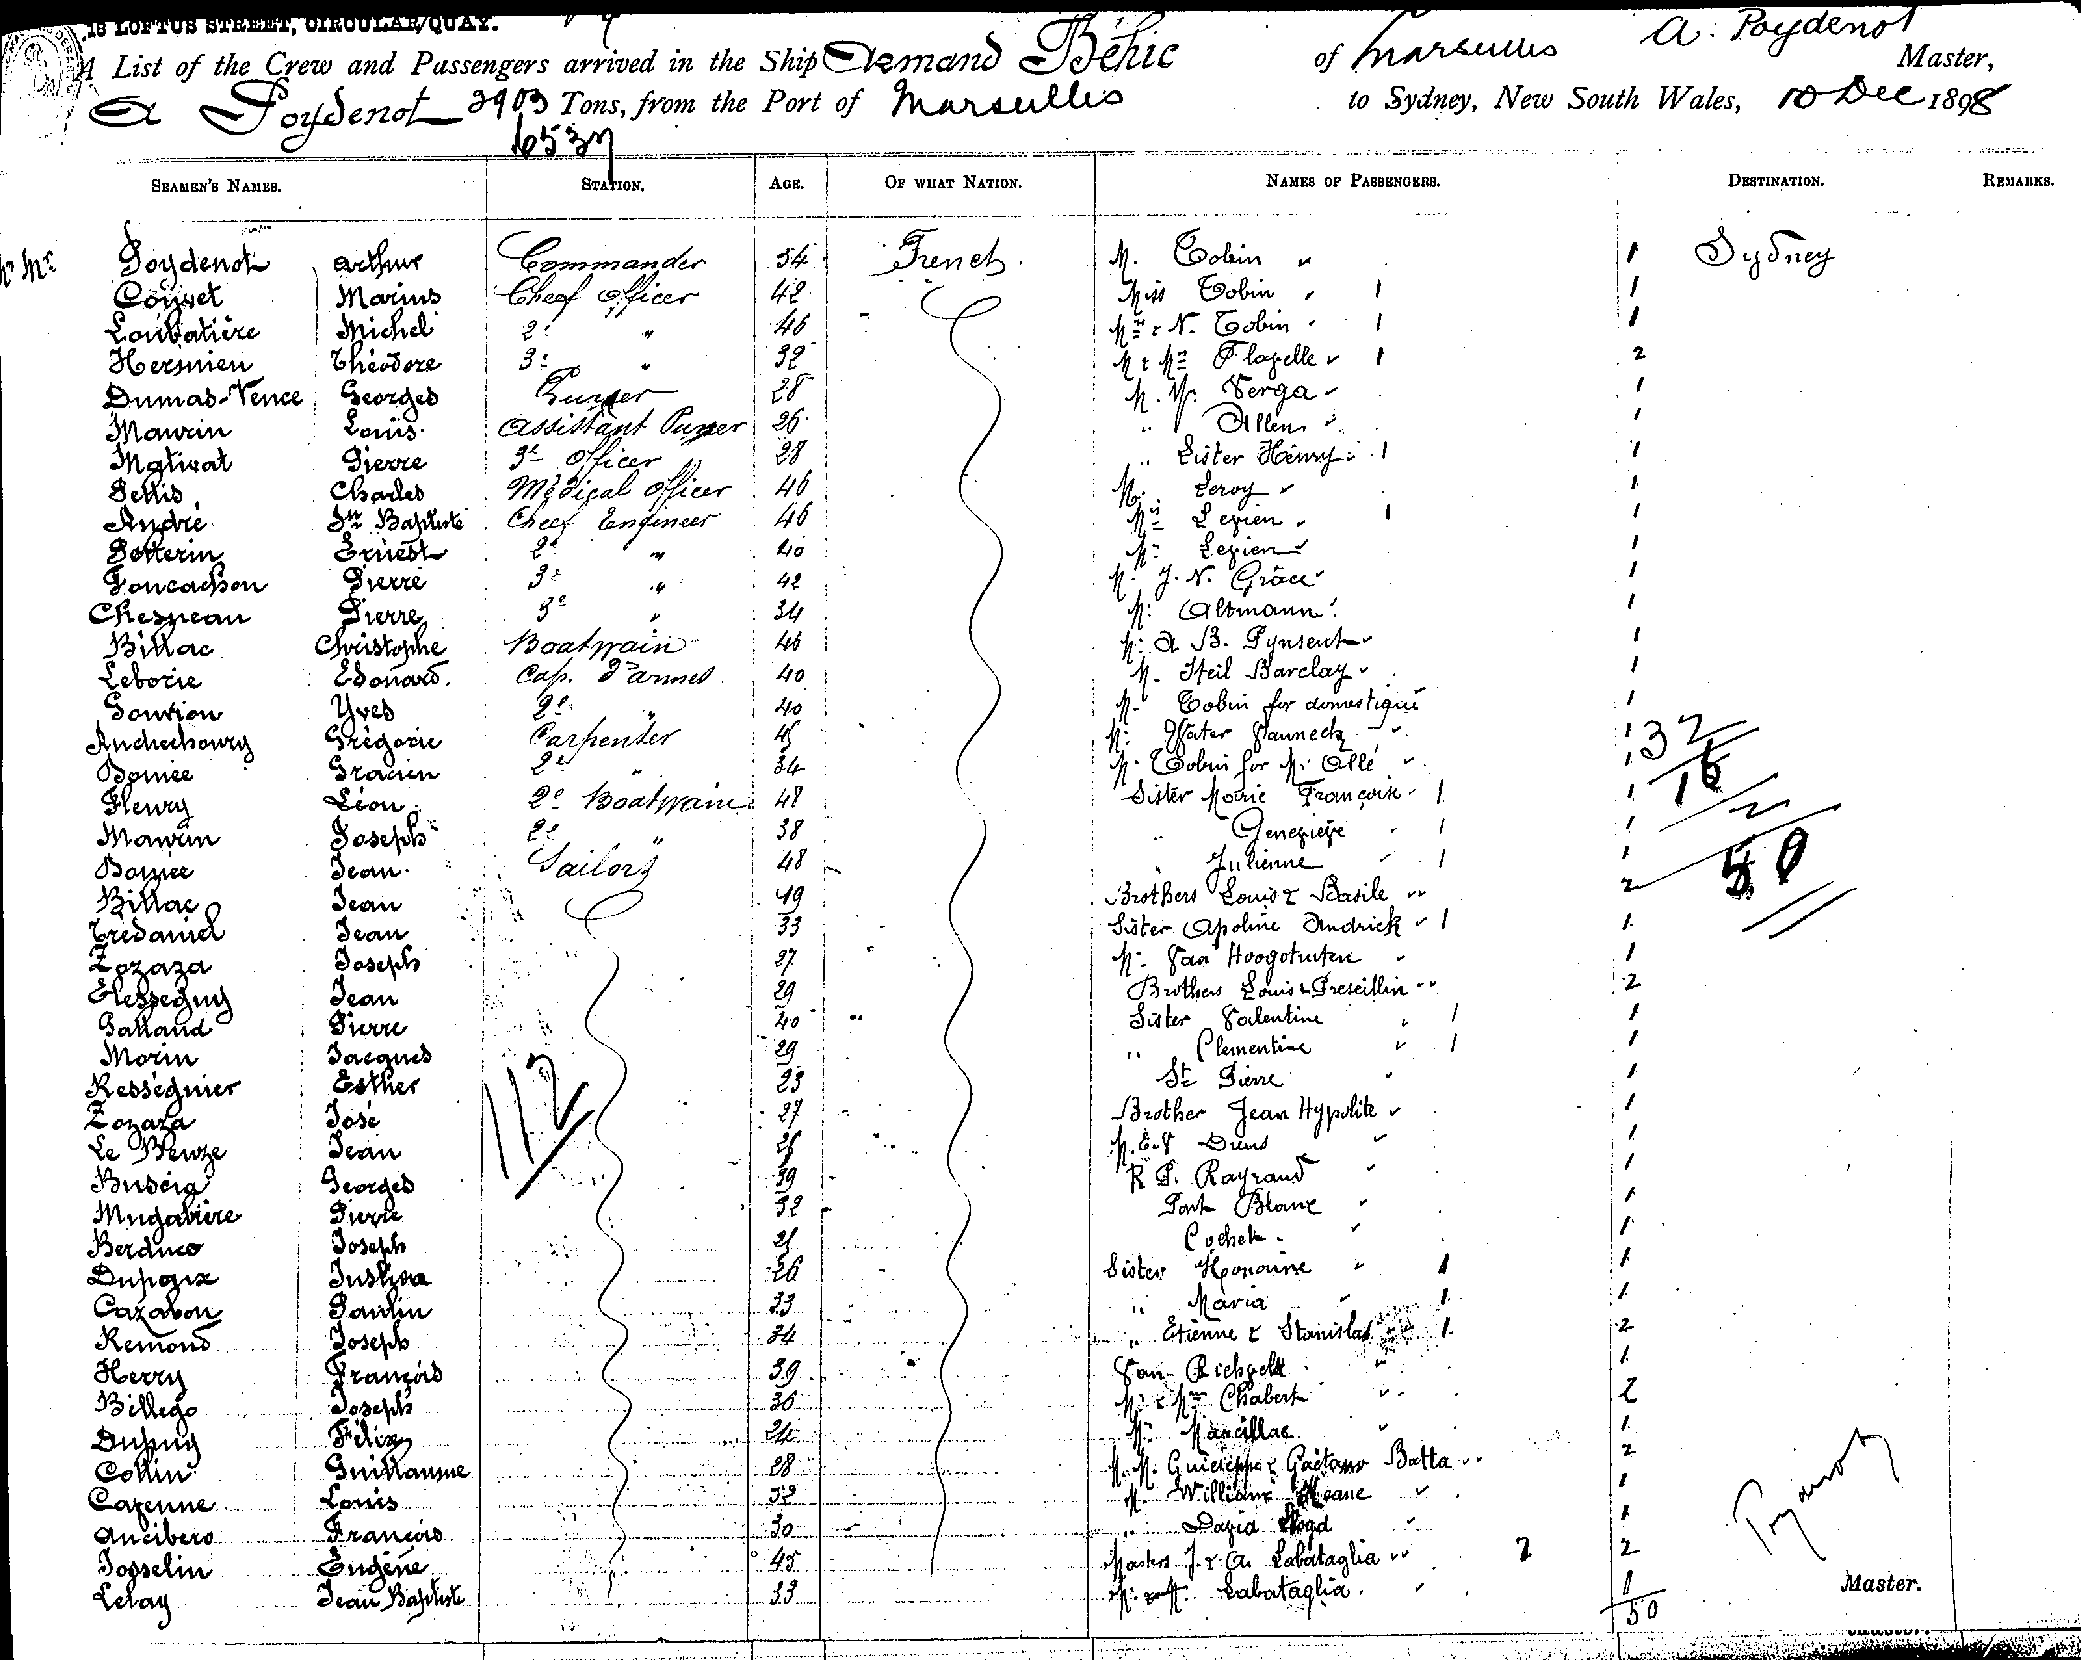 18 LOFTUS STREET, CIRCULAR QUAY.
A List of the Crew and Passengers arrived in the Ship Armand Béhic of Marseilles A. Poydenot Master,
A Poydenot 3903 Tons, from the Port of Marseilles to Sydney, New South Wales, 10 Dec 1898
6537
SEAMEN'S NAMES. STATION. AGE. OF WHAT NATION. NAMES OF PASSENGERS. DESTINATION. REMARKS.
Poydenot Arthur Commander 54 French M. Tobin " 1 Sydney
Couvet Marius Cheef Officer 42 Miss Tobin 1 1
Loubatière Michel 2e " 46 N. Tobin 1 1
Hersnien Théodore 3e " 32 M & Me Flapelle 1 2
Dumas-Vence Georges Purser 28 M. Verga 1
Maurin Louis Assistant Purser 26 " Allen 1
Mativat Pierre 3e Officer 28 " Sister Henry 1 1
Pettis Charles Médical Officer 46 M. Leroy 1
André Jn Baptiste Cheef Engineer 46 Legien 1 1
Potterin Ernest 2e " 40 M. Legien 1
Foncachon Pierre 3e " 42 M. J. N. Grace 1
Chesneau Pierre 3e " 34 M. Altmann 1
Billac Christophe Boatwain 46 M. A. B. Pynsent 1
Leborie Edouard. Cap. d'armes 40 M. Neil Barclay 1
Gouvion Yves 2e " 40 M. Tobin for domestique 1
Andrechoury Grégoire Carpenter 45 M. Water Vanneck 1 32
Bomée Gracien 2e " 34 M. Tobin for Mr Allé 1 16
Fleury Léon 2e Boatwain 48 Sister Marie Françoise 1 1 2
Maurin Joseph 2e " 38 " Geneviève 1 1
Bomée Jean Sailors 48 " Julienne 1 1 50
Billac Jean 49 Brothers Louis & Basile 2
Trédaniel Jean 33 Sister Apoline Andrick 1 1
Zozaza Joseph 27 M. Van Hoogotruten 1
Elesseguy Jean 29 Brothers Louis & Preseillin 2
Galland Pierre 40 Sister Valentine 1 1
Morin Jacques 29 " Clementine 1 1
Rességuier Esther 23 St Pierre 1
112
Zozaza José 27 Brother Jean Hypolite 1
Le Blenze Jean 25 M. E. V Drens 1
Buscia Georges 39 R P. Raynaud 1
Mugabière Pierre 32 Pont Blanc 1
Berduco Joseph 25 Cochet 1
Dupoux Justin 26 Sister Honorine 1 1
Cazabon Paulin 33 " Maria 1 1
Remond Joseph 34 " Etienne & Stanislas 1 2
Herry François 39 Van Richgelt 1
Billego Joseph 36 M. & Me Chabert 2
Dupuy Félix 24 M. Marcillac 1
Collin Guillaume 28 M.M. Guiseppe & Gaëtano Batta 2
Cazenne Louis 32 M. William Keane 1
Ancibero François 30 " David Lloyd 1
Josselin Eugène 45 Masters J. & A. Labataglia 2 2
Lelay Jean Baptiste 33 Labataglia 1
50
Poydenot
Master.